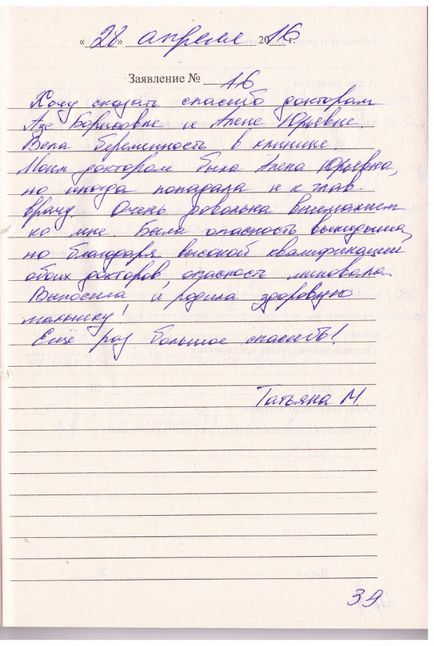 «28» апреля 2016 г.
Заявление № 16
Хочу сказать спасибо докторам
Азе Борисовне и Алене Юрьевне.
Вела беременность в клинике.
Моим доктором была Алена Юрьевна,
но иногда попадала и к глав.
врачу. Очень довольна вниманием
ко мне. Была опасность выкидыша,
но благодаря высокой квалификации
обоих докторов, опасность миновала.
Выносила и родила здоровую
малышку!
Ещё раз большое спасибо!
Татьяна М.
39